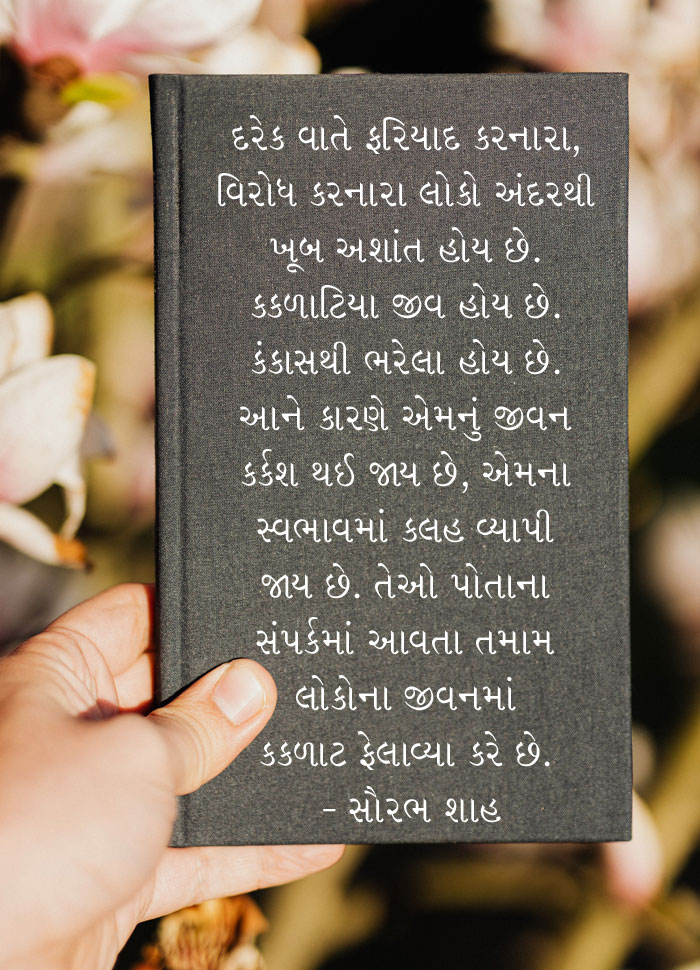 દરેક વાતે ફરિયાદ કરનારા,
વિરોધ કરનારા લોકો અંદરથી
ખૂબ અશાંત હોય છે.
કકળાટિયા જીવ હોય છે.
કંકાસથી ભરેલા હોય છે.
આને કારણે એમનું જીવન
કર્કશ થઈ જાય છે, એમના
સ્વભાવમાં કલહ વ્યાપી
જાય છે. તેઓ પોતાના
સંપર્કમાં આવતા તમામ
લોકોના જીવનમાં
કકળાટ ફેલાવ્યા કરે છે.
- સૌરભ શાહ